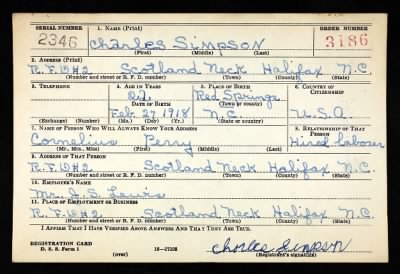 SERIAL NUMBER
1. NAME (Print)
ORDER NUMBER
2346
Charles Simpson
3186
(First) (Middle) (Last)
2. ADDRESS (Print)
R.F.D#2 Scotland Neck Halifax N.C.
(Number and street or R. F. D. number) (Town) (County) (State)
3. TELEPHONE
4. AGE IN YEARS
5. PLACE OF BIRTH
6. COUNTRY OF CITIZENSHIP
22
Red Springs
DATE OF BIRTH
(Town or county)
Feb. 27, 1918
N.C.
U.S.A.
(Exchange) (Number)
(Mo.) (Day) (Yr.)
(State or country)
7. NAME OF PERSON WHO WILL ALWAYS KNOW YOUR ADDRESS
8. RELATIONSHIP OF THAT PERSON
Cornelius Perry
Hired laborer
(Mr., Mrs., Miss) (First) (Middle) (Last)
9. ADDRESS OF THAT PERSON
R.F.D#2 Scotland Neck Halifax N.C.
(Number and street or R. F. D. number) (Town) (County) (State)
10. EMPLOYER'S NAME
Mr. J. S. Lewis
11. PLACE OF EMPLOYMENT OR BUSINESS
R.F.D#2 Scotland Neck Halifax N.C.
(Number and street or R. F. D. number) (Town) (County) (State)
I AFFIRM THAT I HAVE VERIFIED ABOVE ANSWERS AND THAT THEY ARE TRUE.
REGISTRATION CARD
D. S. S. Form 1
(over)
Charles Simpson
(Registrant's signature)